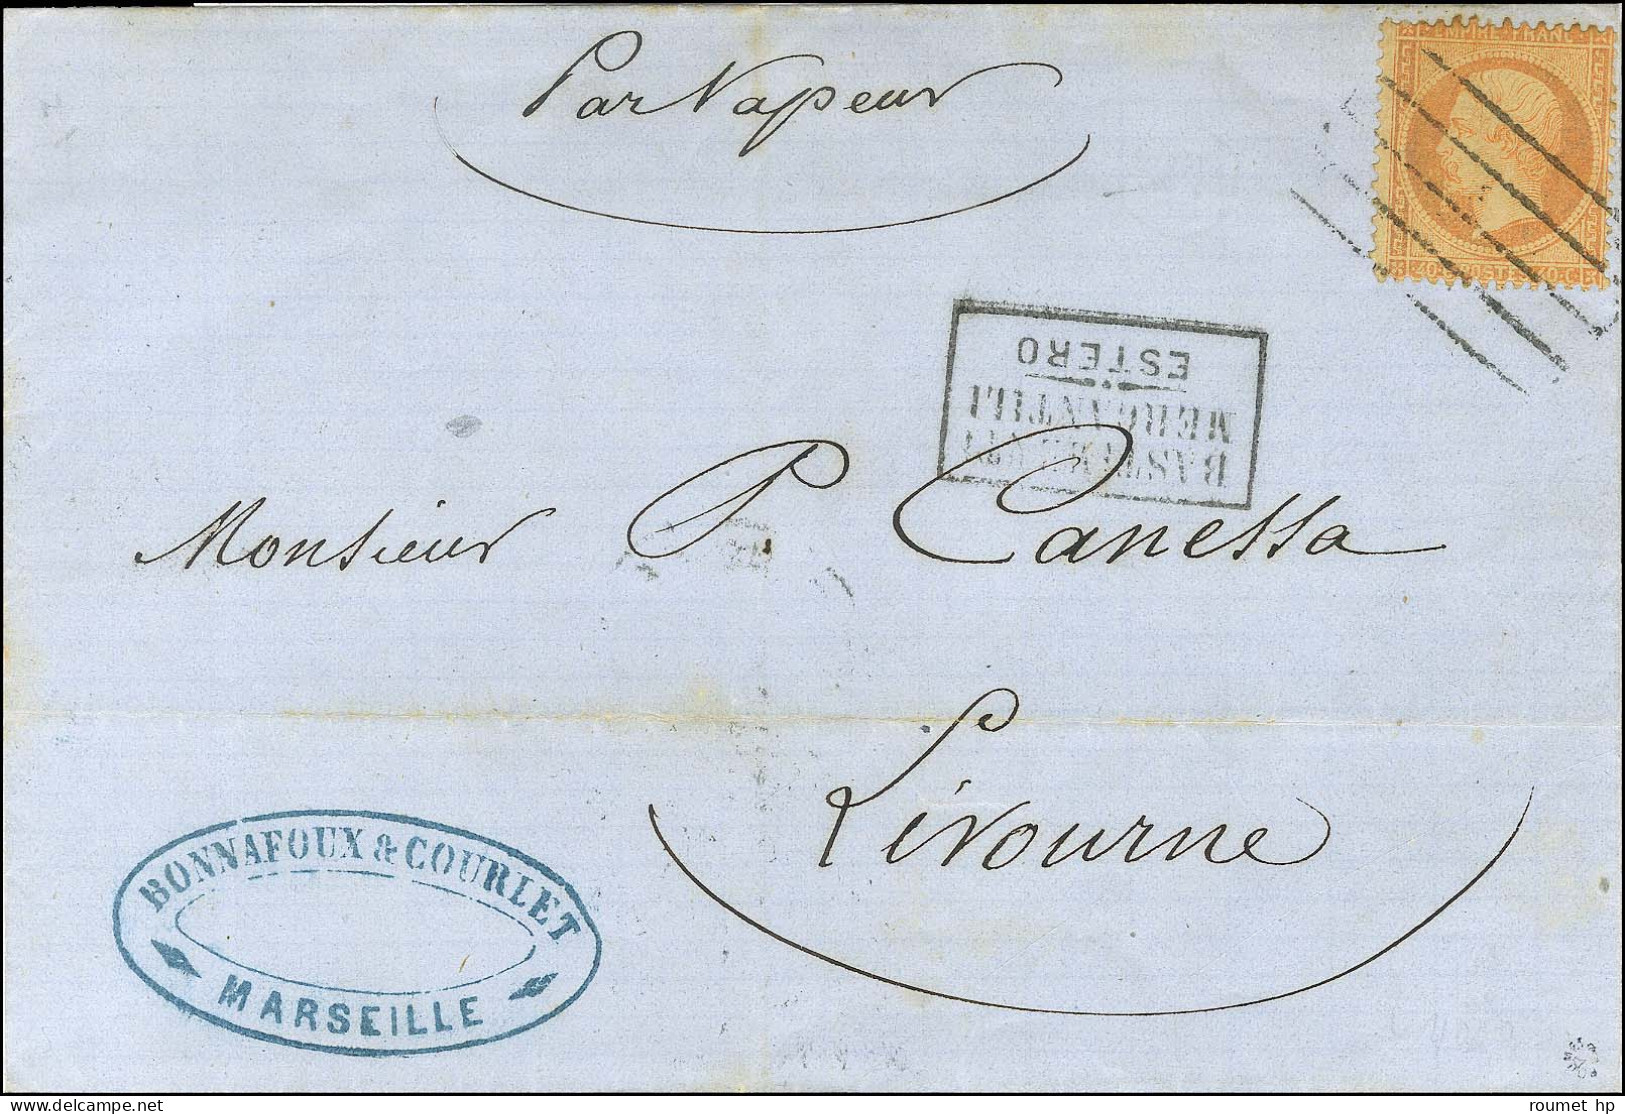 Par Vapeur
EMPIRE FRANC
40 C POSTES 40 C
ESTERO
MERCANTILI
BASTIMENTI
Monsieur P Canessa
Livourne
BONNAFOUX & COURLET
MARSEILLE
roumet hp